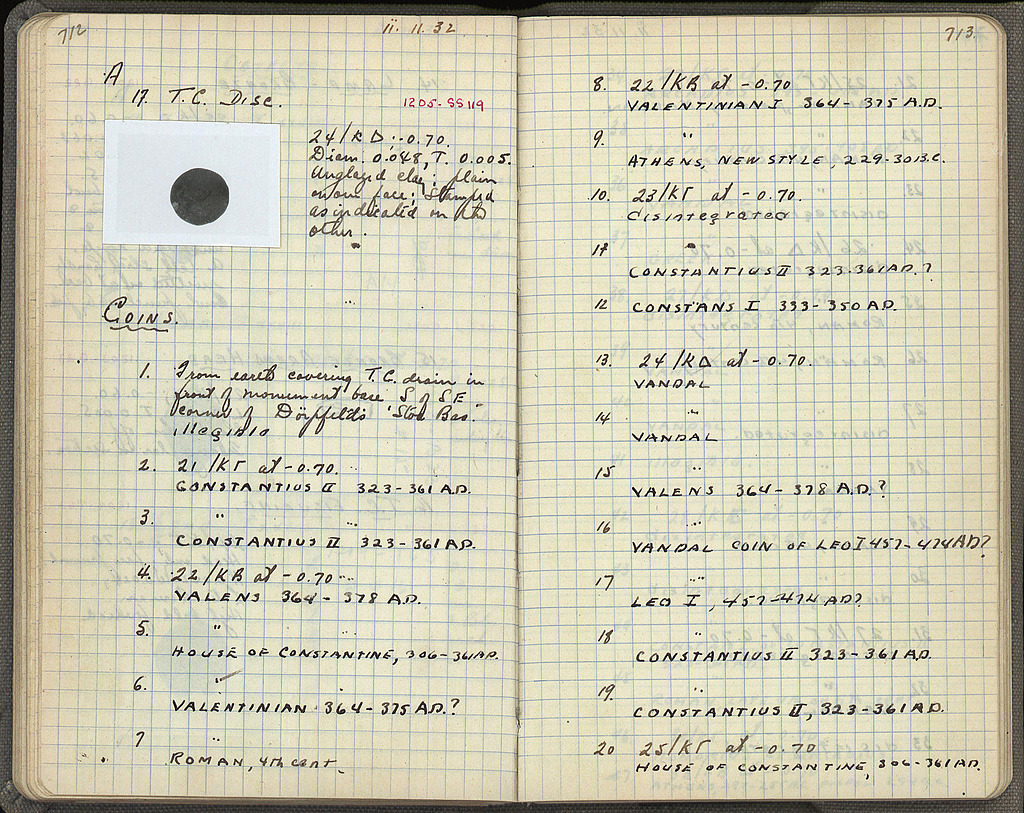 712
11. 11. 32
A
17. T.C. Disc.
1205-SS119
24/ΚΔ : -0.70.
Diam. 0.048, T. 0.005.
Unglazed clay; plain
on one face; stamped
as indicated on the
other.
COINS.
1. From earth covering T.C. drain in
front of monument base S of SE
corner of Dörpfeld's "Stoa Bas."
illegible
2. 21/ΚΓ at -0.70.
CONSTANTIUS II 323-361 A.D.
3. " "
CONSTANTIUS II 323-361 AD.
4. 22/ΚΒ at -0.70
VALENS 364-378 A.D.
5. " "
HOUSE OF CONSTANTINE, 306-361 AD.
6. "
VALENTINIAN 364-375 A.D.?
7 "
ROMAN, 4th cent.
713.
8. 22/ΚΒ at -0.70
VALENTINIAN I 364-375 A.D.
9. "
ATHENS, NEW STYLE, 229-30 B.C.
10. 23/ΚΓ at -0.70.
Disintegrated
11 "
CONSTANTIUS II 323-361 AD.?
12 CONSTANS I 333-350 AD.
13. 24/ΚΔ at -0.70.
VANDAL
14 "
VANDAL
15 "
VALENS 364-378 A.D.?
16 "
VANDAL COIN OF LEO I 457-474 AD?
17 "
LEO I, 457-474 AD?
18 "
CONSTANTIUS II 323-361 AD.
19. "
CONSTANTIUS II, 323-361 AD.
20 25/ΚΓ at -0.70
HOUSE OF CONSTANTINE, 306-361 AD.